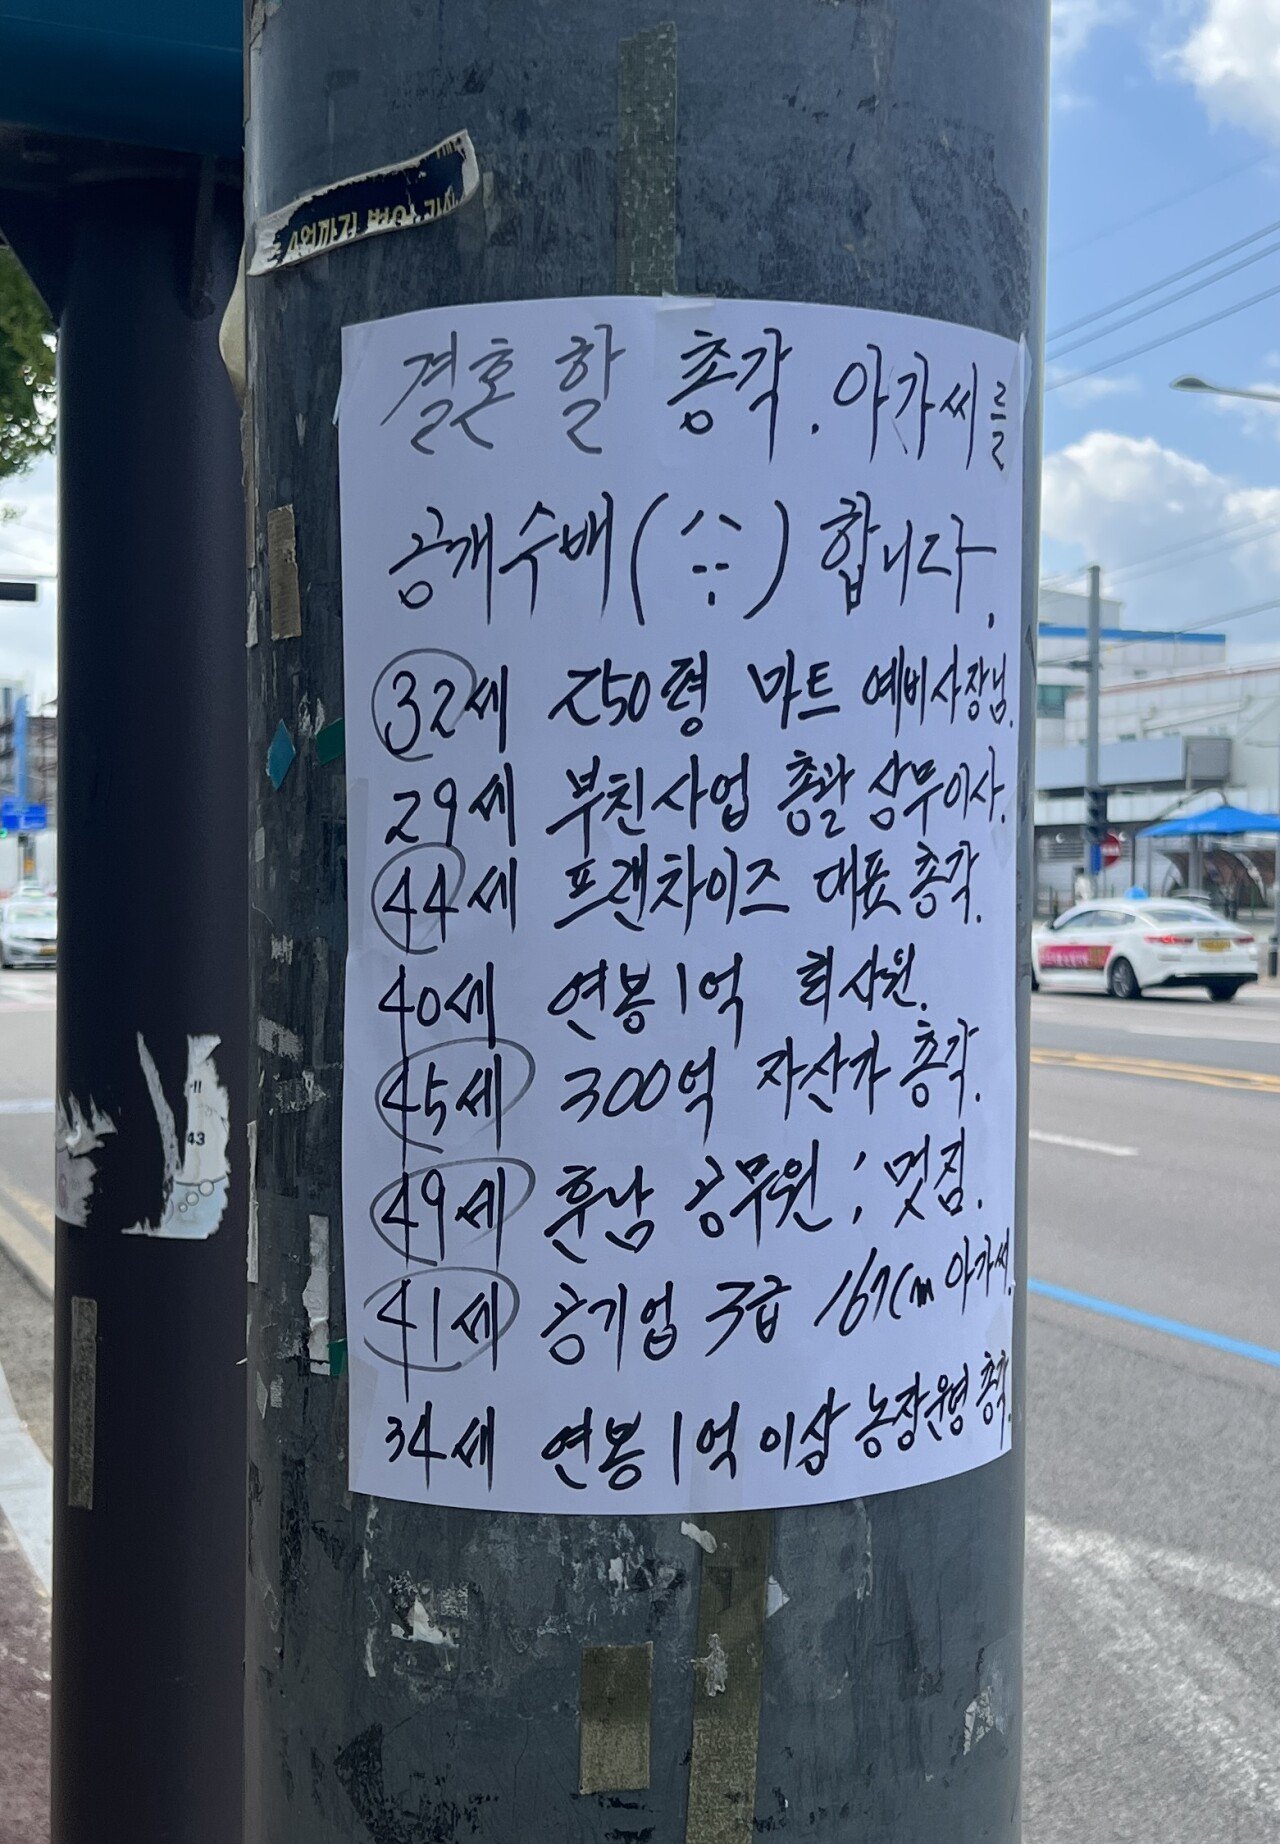 4억까지
결혼 할 총각. 아가씨를
공개수배(^^) 합니다.
32세 250평 마트 예비사장님.
29세 부친사업 총괄 상무이사.
44세 프랜차이즈 대표총각.
40세 연봉1억 회사원.
45세 300억 자산가 총각.
49세 훈남 공무원; 멋짐.
41세 공기업 3급 167cm 아가씨.
34세 연봉1억이상 농장운영 총각.
43